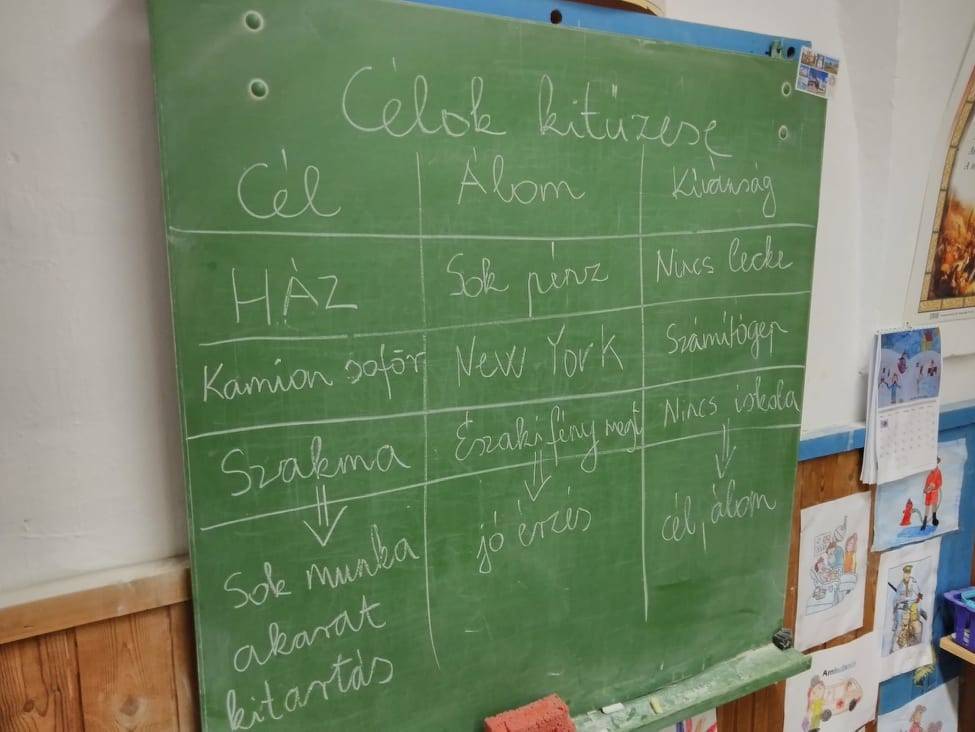 Célok kitűzése
Cél Álom Kívánság
HÁZ Sok pénz Nincs lecke
Kamion sofőr New York Számítógép
Szakma Északi fény megt Nincs iskola
⇓ ⇓ ⇓
Sok munka jó érzés cél, álom
akarat
kitartás
Ambulanță